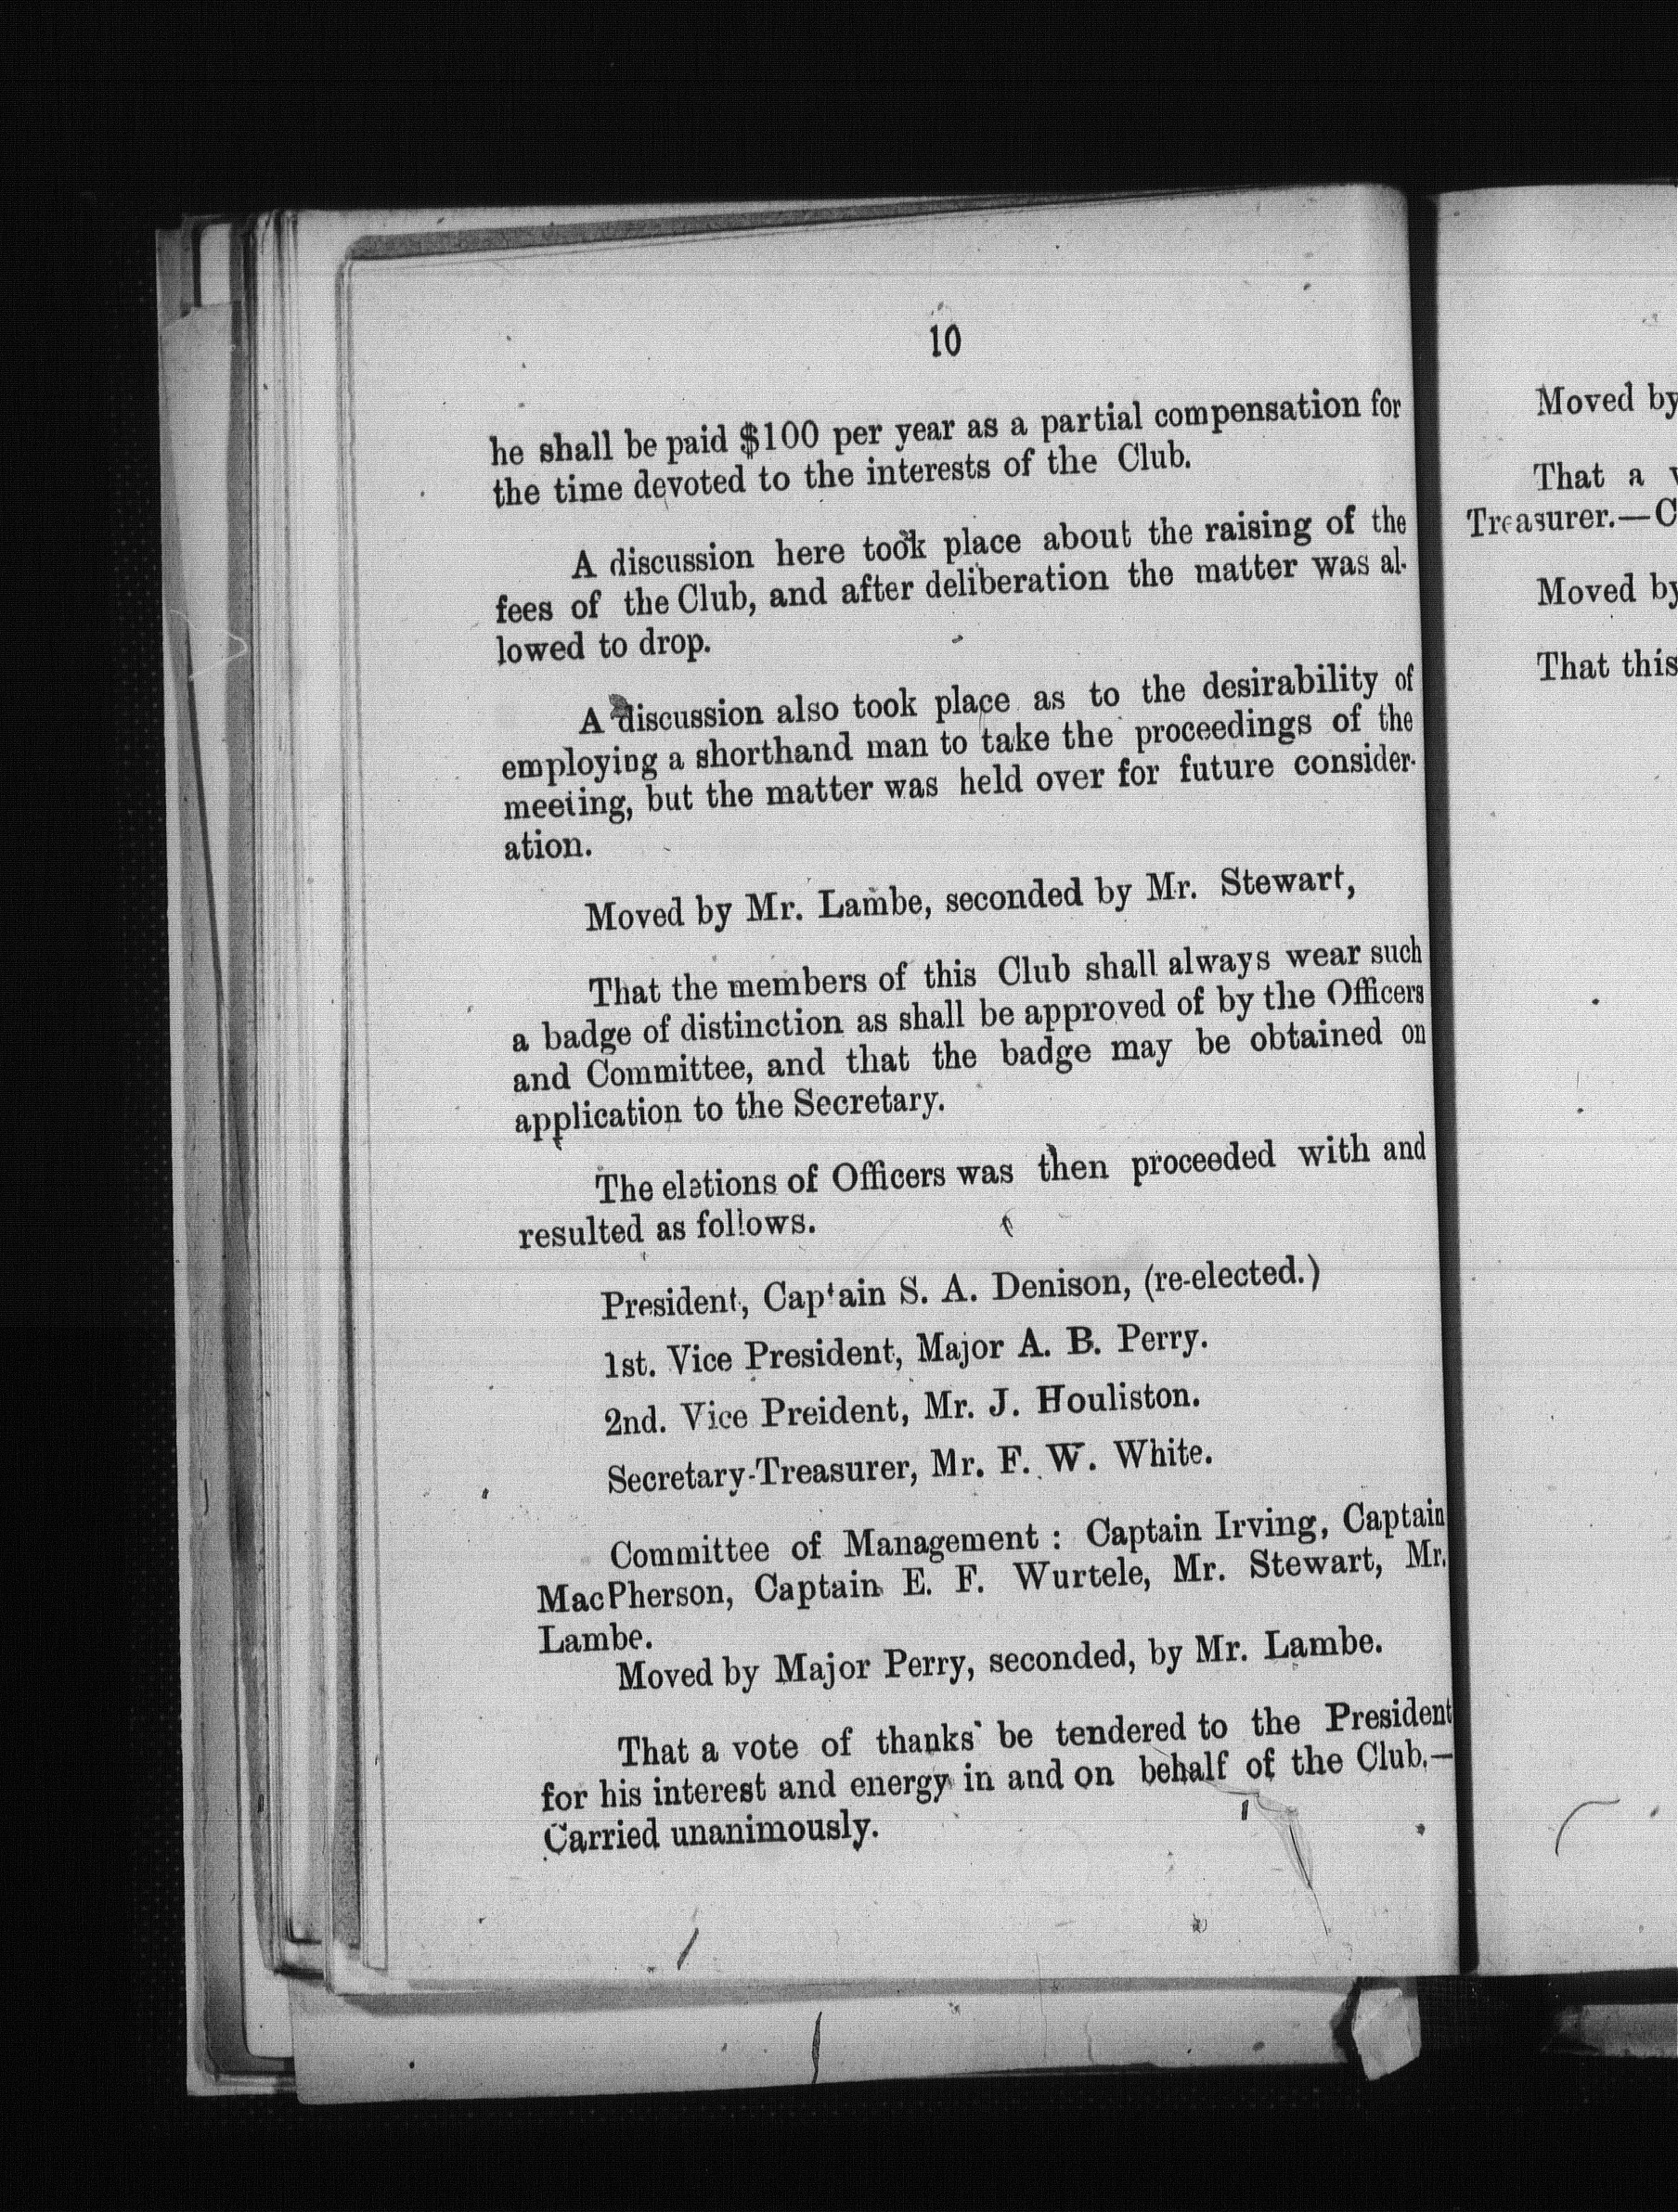 10
he shall be paid $100 per year as a partial compensation for
the time devoted to the interests of the Club.
A discussion here took place about the raising of the
fees of the Club, and after deliberation the matter was al-
lowed to drop.
A discussion also took place as to the desirability of
employing a shorthand man to take the proceedings of the
meeting, but the matter was held over for future consider-
ation.
Moved by Mr. Lambe, seconded by Mr. Stewart,
That the members of this Club shall always wear such
a badge of distinction as shall be approved of by the Officers
and Committee, and that the badge may be obtained on
application to the Secretary.
The elections of Officers was then proceeded with and
resulted as follows.
President, Captain S. A. Denison, (re-elected.)
1st. Vice President, Major A. B. Perry.
2nd. Vice Preident, Mr. J. Houliston.
Secretary-Treasurer, Mr. F. W. White.
Committee of Management : Captain Irving, Captain
MacPherson, Captain E. F. Wurtele, Mr. Stewart, Mr.
Lambe.
Moved by Major Perry, seconded, by Mr. Lambe.
That a vote of thanks be tendered to the President
for his interest and energy in and on behalf of the Club.—
Carried unanimously.
Moved by
That a
Treasurer.—C
Moved by
That this